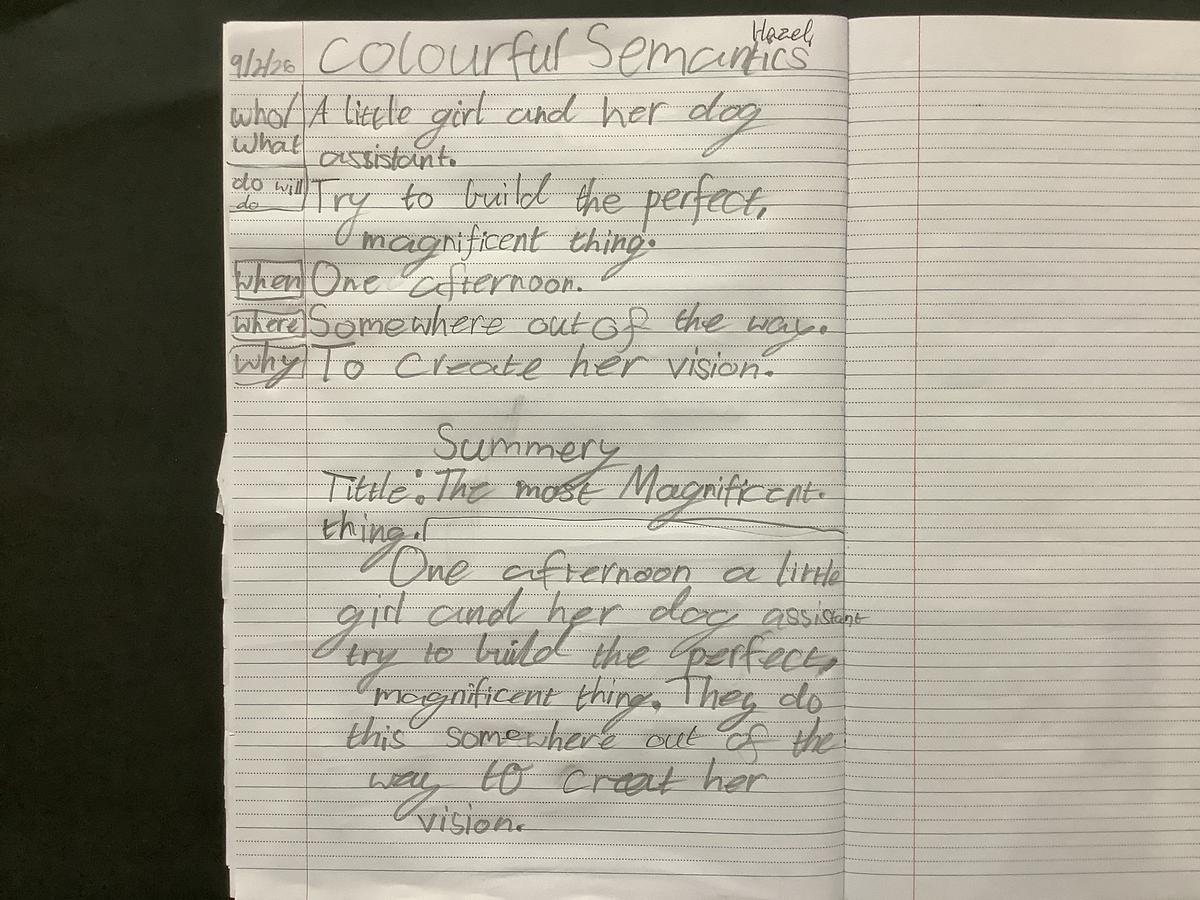 Hazel
9/2/26 Colourful Semantics
who/ A little girl and her dog
what assistant.
do will Try to build the perfect,
do
magnificent thing.
when One afternoon.
where Somewhere out of the way.
why To create her vision.
Summery
Tittle: The most Magnificent.
thing.
One afternoon a little
girl and her dog assistant
try to build the perfect,
magnificent thing. They do
this somewhere out of the
way to creat her
vision.